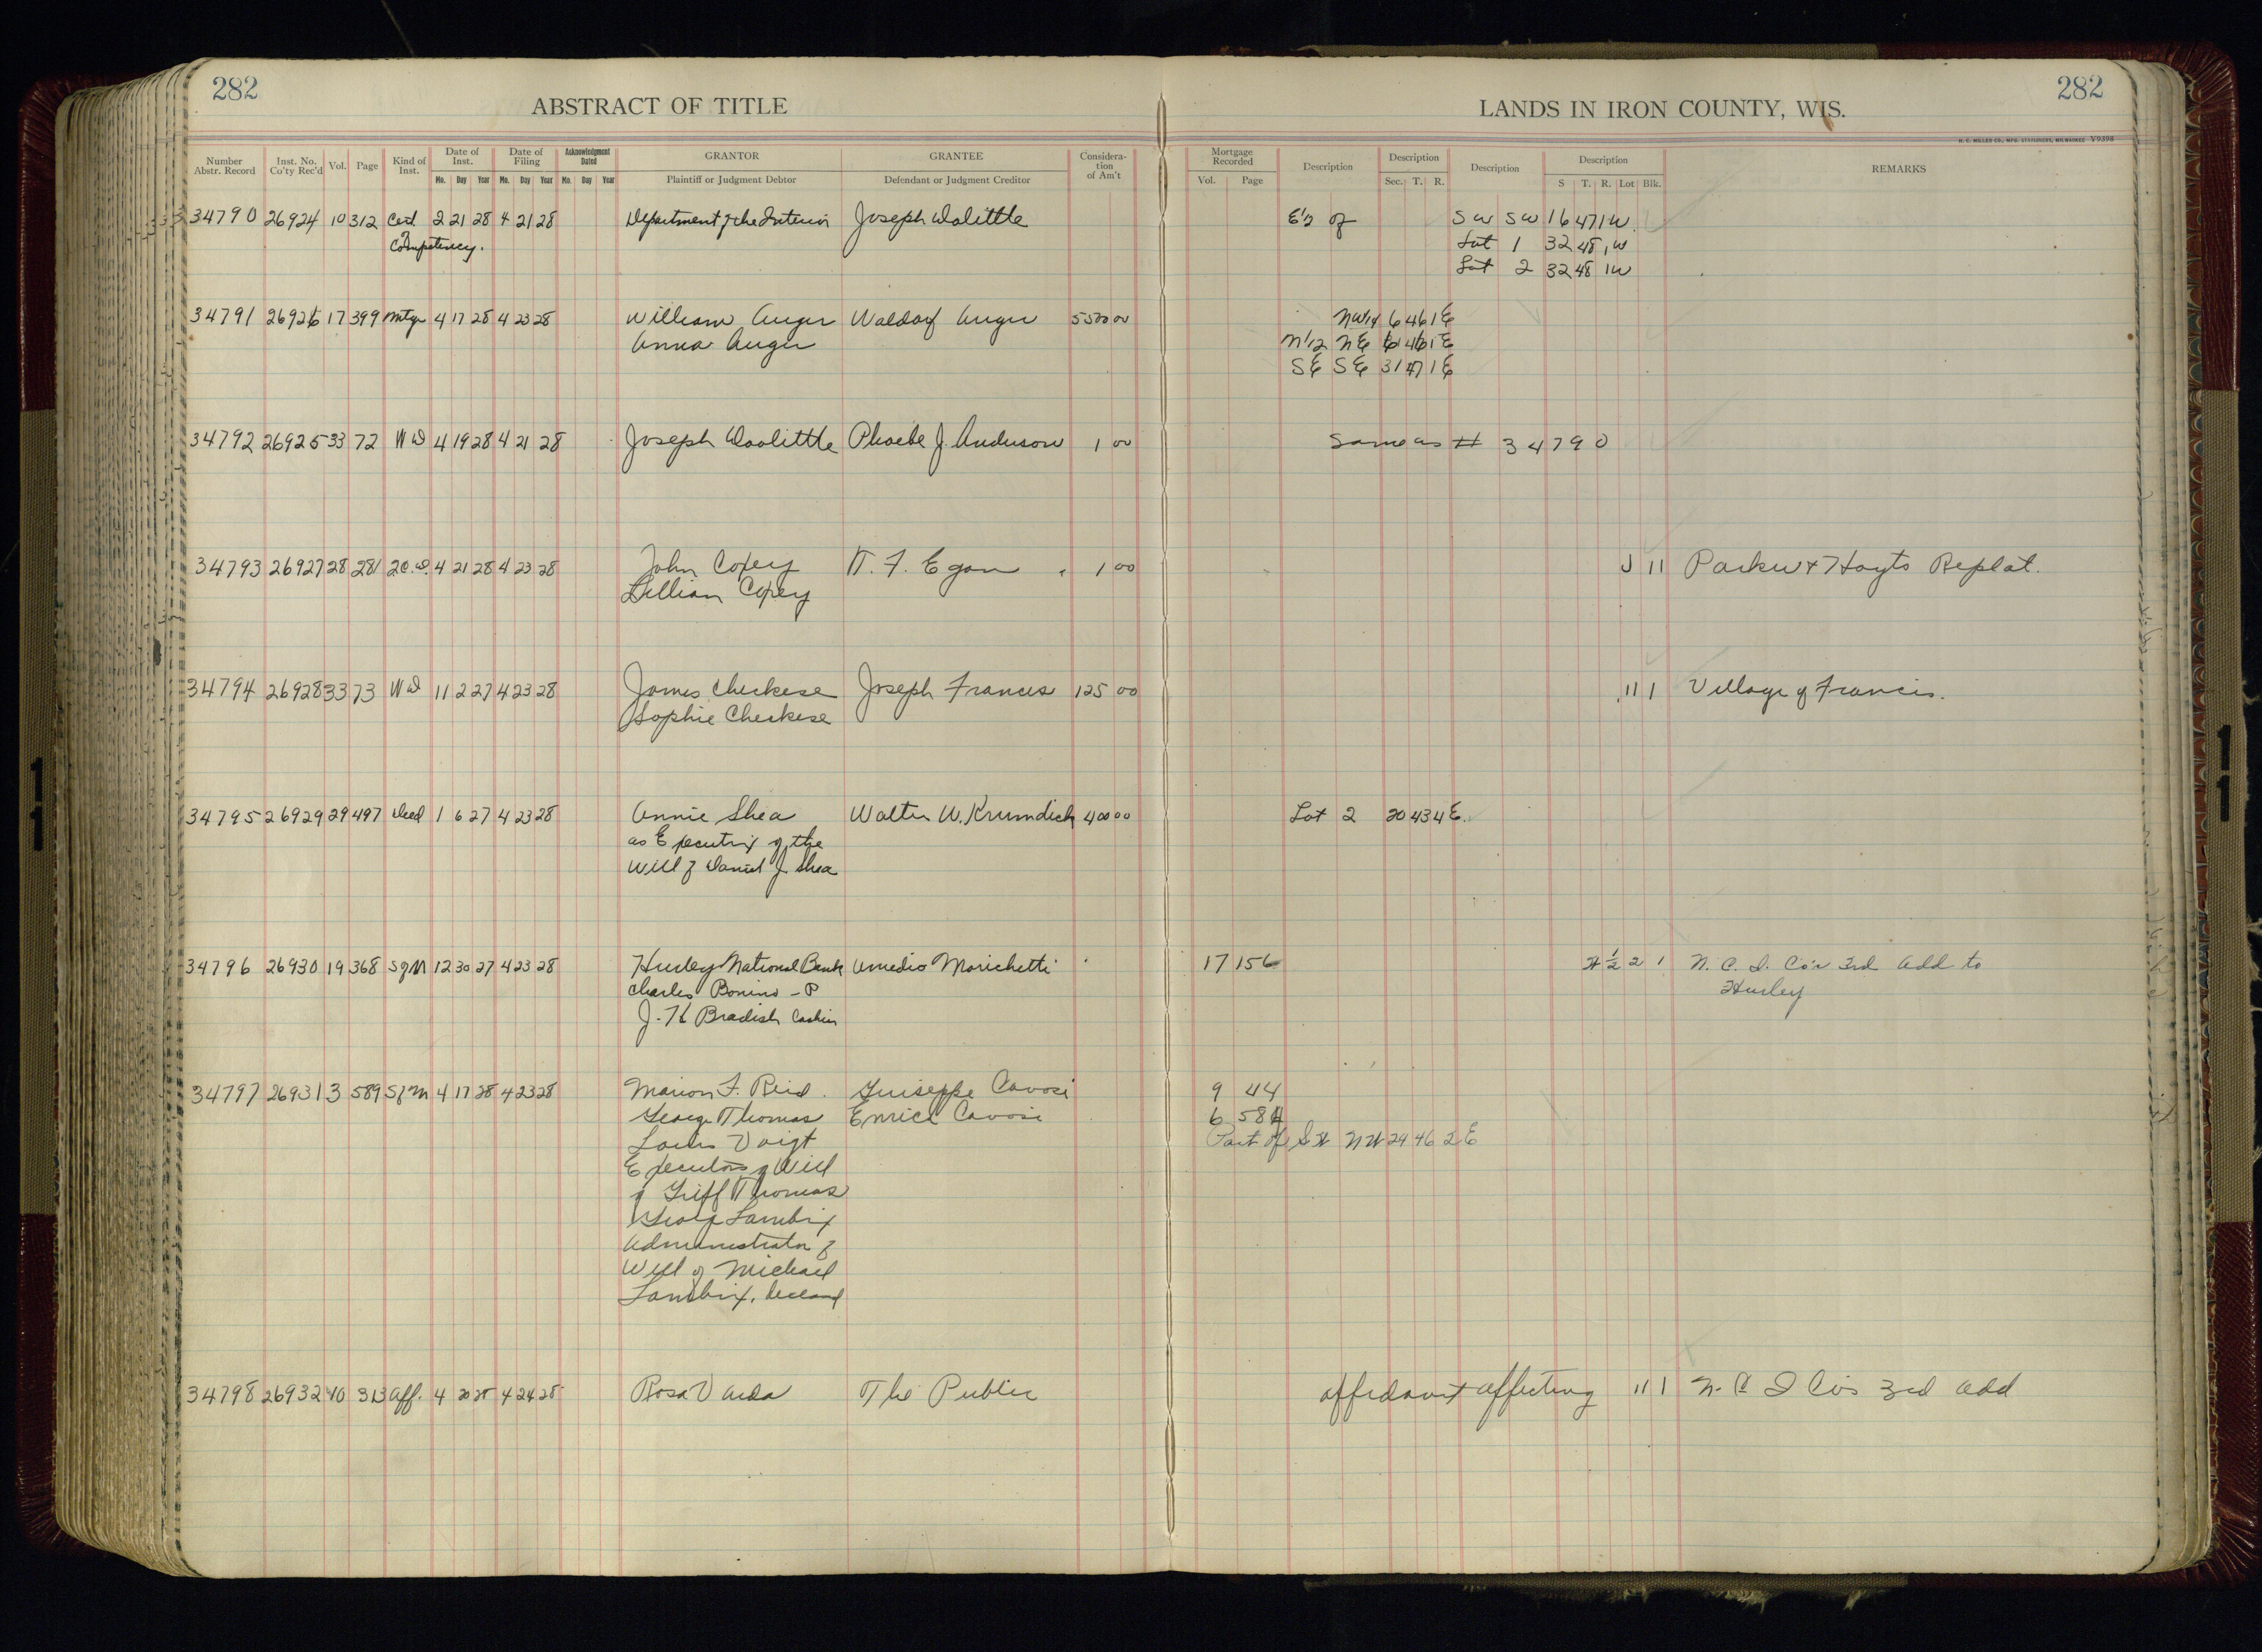 282
ABSTRACT OF TITLE
LANDS IN IRON COUNTY, WIS.
282
H. C. MILLER CO., MFG. STATIONERS, MILWAUKEE V9398
Number Abstr. Record Inst. No. Co'ty Rec'd Vol. Page Kind of Inst. Date of Inst. Date of Filing Acknowledgment Dated GRANTOR GRANTEE Consideration of Am't Mortgage Recorded Description Description Description Description REMARKS
Mo. Day Year Mo. Day Year Mo. Day Year Plaintiff or Judgment Debtor Defendant or Judgment Creditor Vol. Page Sec. T. R. S T. R. Lot Blk.
34790 26924 10 312 Cert 2 21 28 4 21 28 Department of the Interior Joseph Dolittle E 1/2 of SW SW 16 47 1W
of Competency. Lot 1 32 48 1W
Lot 2 32 48 1W
34791 26926 17 399 Mtge 4 17 28 4 23 28 William Auger Waldorf Auger 5500 00 NW 1/4 6 46 1E
Anna Auger N 1/2 NE 6 46 1E
SE SE 31 47 1E
34792 26925 33 72 WD 4 19 28 4 21 28 Joseph Doolittle Phoebe J. Anderson 1 00 Same as # 34790
34793 26927 28 281 2C.D. 4 21 28 4 23 28 John Copey W. F. Egan 1 00 J 11 Parker & Hoyts Replat.
Lillian Copey
34794 26928 33 73 WD 11 2 27 4 23 28 James Cheskese Joseph Francis 125 00 11 1 Village of Francis.
Sophie Cheskese
34795 26929 29 497 Deed 1 6 27 4 23 28 Annie Shea Walter W. Krumdick 400 00 Lot 2 20 43 4E
as Executrix of the
Will of Daniel J. Shea
34796 26930 19 368 SgM 12 30 27 4 23 28 Hurley National Bank Amedio Marichetti 17 156 W 1/2 2 1 N. C. I. Co's 3rd Add to
Charles Bonino - P Hurley
J. H Bradish Cashier
34797 26931 3 589 SgM 4 17 28 4 23 28 Marion F. Reid Guiseppe Cavosi 9 44
George Thomas Enrice Cavosi 6 584
Louis Voigt Part of SW NW 24 46 2E
Executors of Will
of Griff Thomas
George Lambrix
Administrator of
Will of Michael
Lambrix, Deceased
34798 26932 10 313 Aff. 4 20 28 4 24 28 Rosa Varda The Public Affidavit affecting 11 1 N. C I Co's 3rd Add